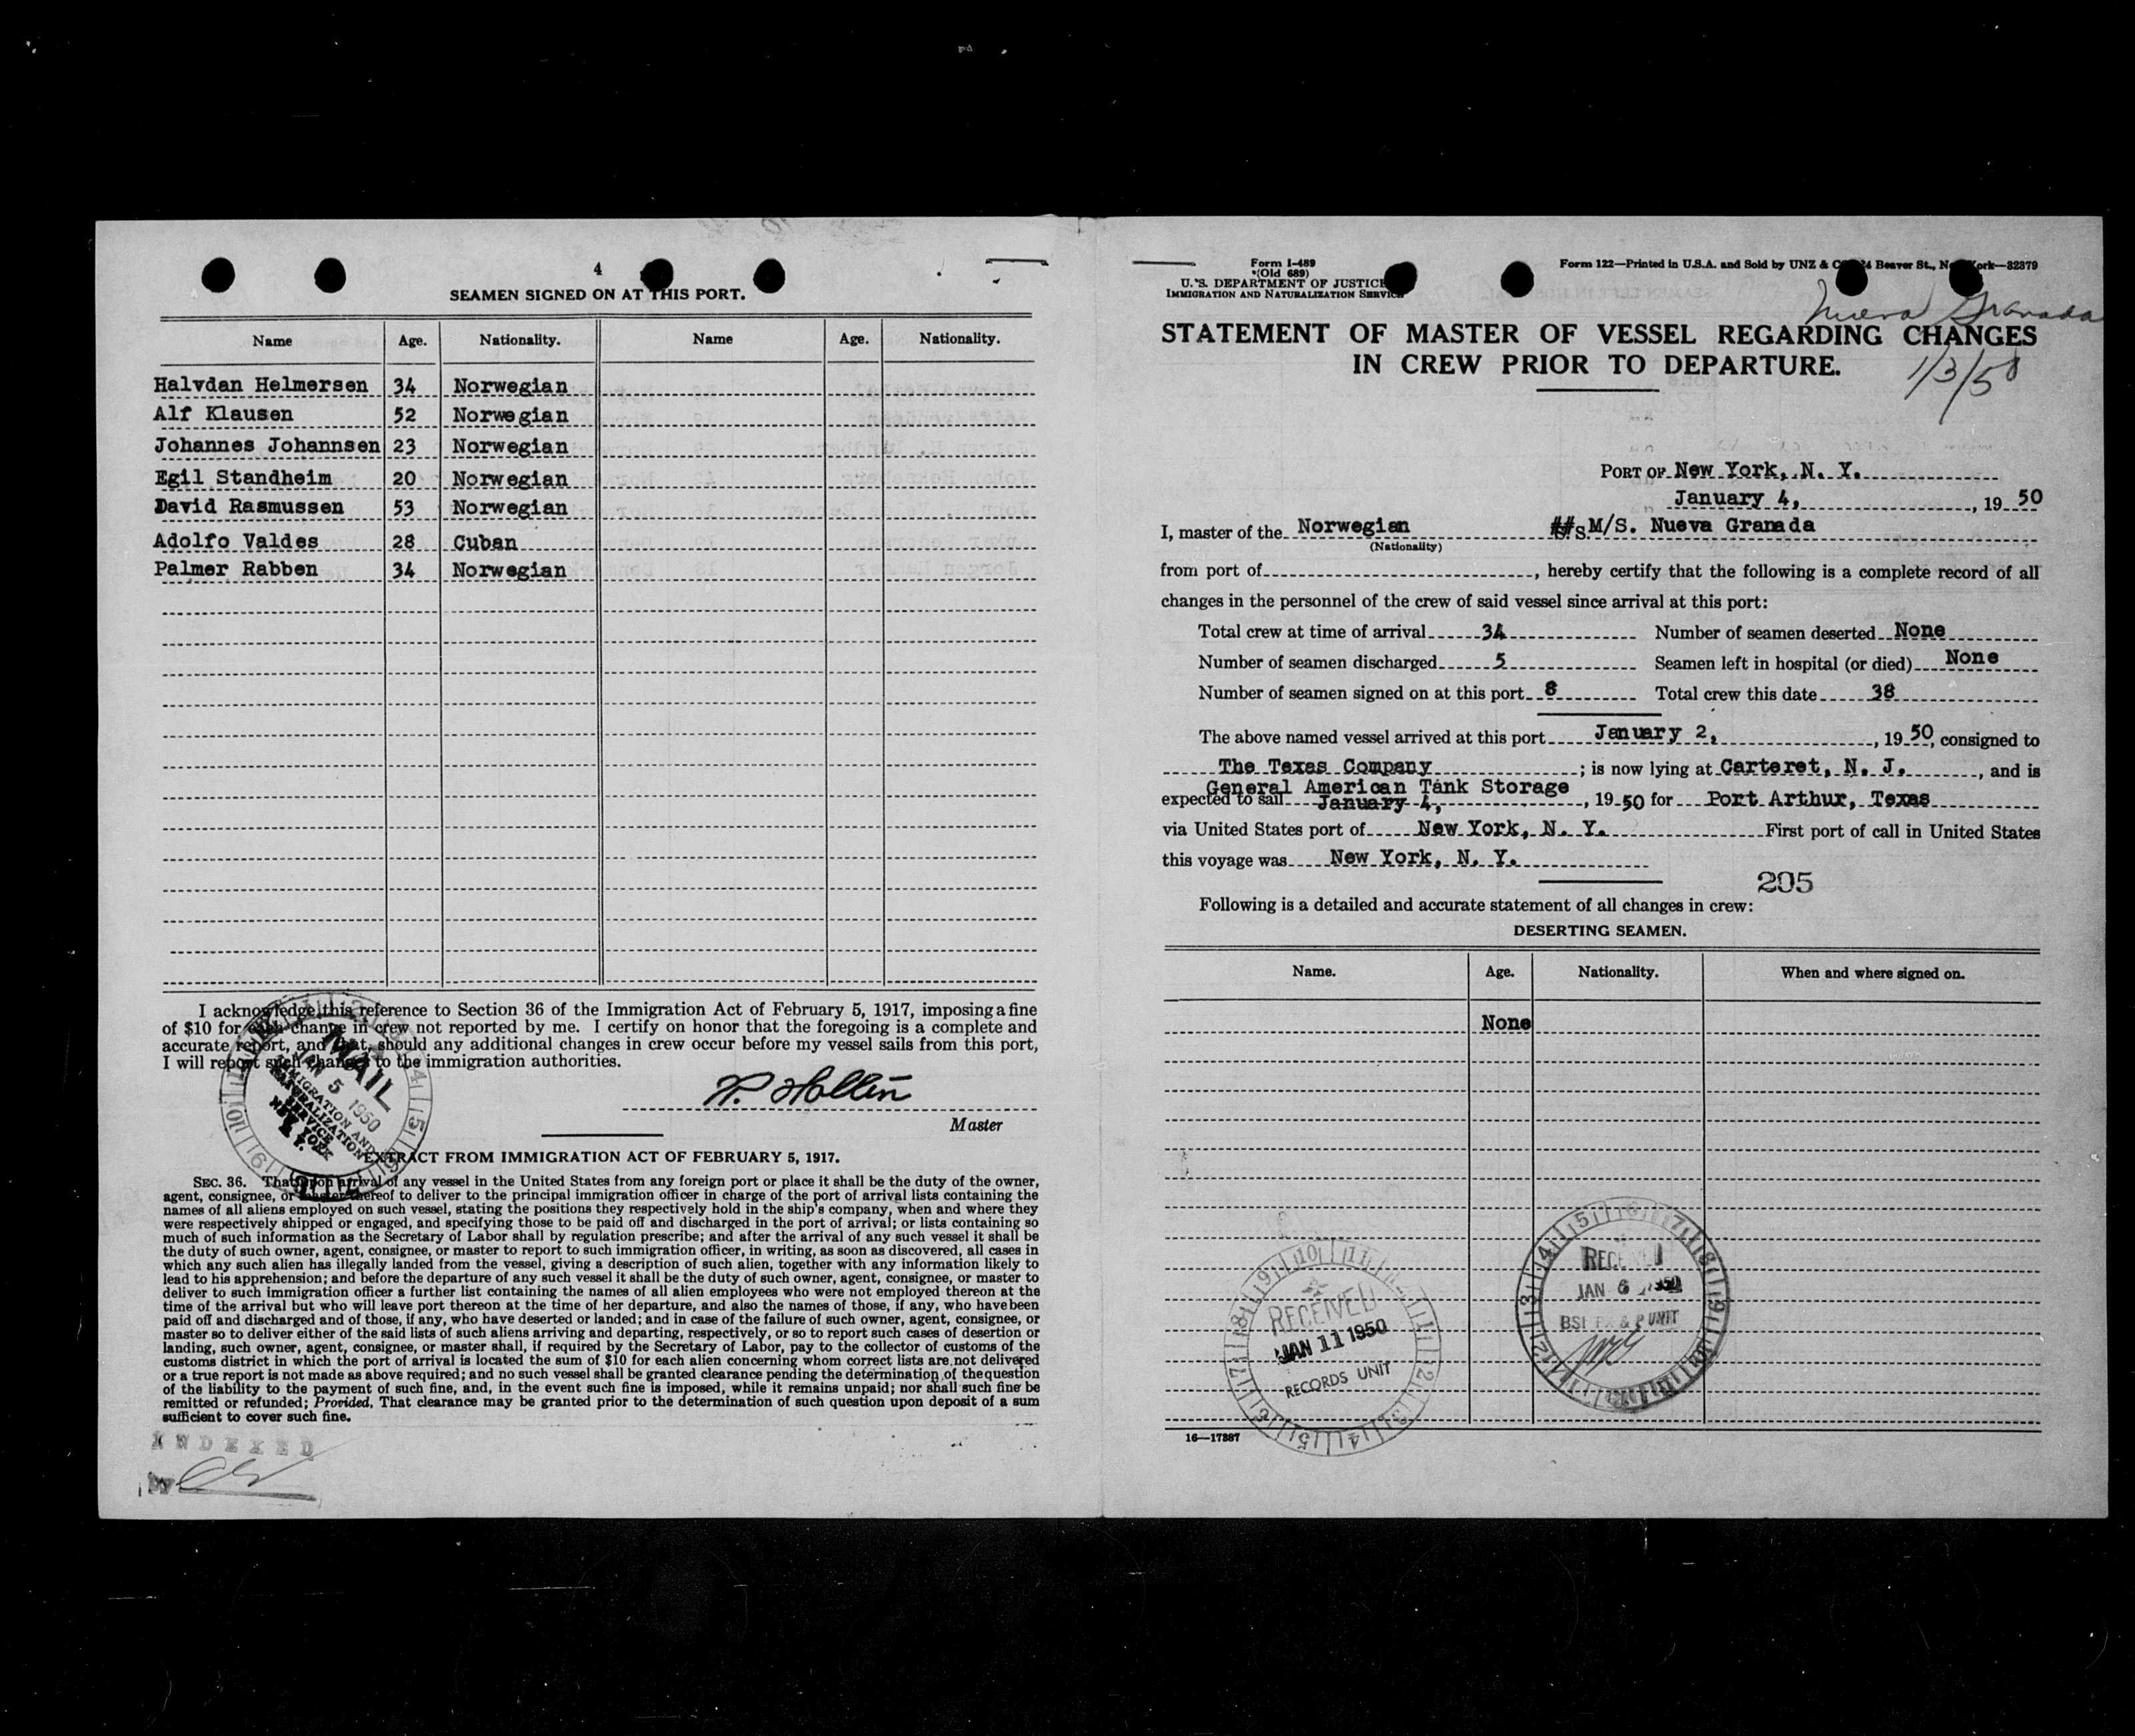 4
SEAMEN SIGNED ON AT THIS PORT.
Name Age. Nationality. Name Age. Nationality.
Halvdan Helmersen 34 Norwegian
Alf Klausen 52 Norwegian
Johannes Johannsen 23 Norwegian
Egil Standheim 20 Norwegian
David Rasmussen 53 Norwegian
Adolfo Valdes 28 Cuban
Palmer Rabben 34 Norwegian
I acknowledge this reference to Section 36 of the Immigration Act of February 5, 1917, imposing a fine
of $10 for each change in crew not reported by me. I certify on honor that the foregoing is a complete and
accurate report, and that, should any additional changes in crew occur before my vessel sails from this port,
I will report such changes to the immigration authorities.
MAIL
JAN 5 1950
IMMIGRATION AND
NATURALIZATION
SERVICE
NEW YORK
N. Y.
Master
EXTRACT FROM IMMIGRATION ACT OF FEBRUARY 5, 1917.
SEC. 36. That upon arrival of any vessel in the United States from any foreign port or place it shall be the duty of the owner,
agent, consignee, or master thereof to deliver to the principal immigration officer in charge of the port of arrival lists containing the
names of all aliens employed on such vessel, stating the positions they respectively hold in the ship's company, when and where they
were respectively shipped or engaged, and specifying those to be paid off and discharged in the port of arrival; or lists containing so
much of such information as the Secretary of Labor shall by regulation prescribe; and after the arrival of any such vessel it shall be
the duty of such owner, agent, consignee, or master to report to such immigration officer, in writing, as soon as discovered, all cases in
which any such alien has illegally landed from the vessel, giving a description of such alien, together with any information likely to
lead to his apprehension; and before the departure of any such vessel it shall be the duty of such owner, agent, consignee, or master to
deliver to such immigration officer a further list containing the names of all alien employees who were not employed thereon at the
time of the arrival but who will leave port thereon at the time of her departure, and also the names of those, if any, who have been
paid off and discharged and of those, if any, who have deserted or landed; and in case of the failure of such owner, agent, consignee, or
master so to deliver either of the said lists of such aliens arriving and departing, respectively, or so to report such cases of desertion or
landing, such owner, agent, consignee, or master shall, if required by the Secretary of Labor, pay to the collector of customs of the
customs district in which the port of arrival is located the sum of $10 for each alien concerning whom correct lists are not delivered
or a true report is not made as above required; and no such vessel shall be granted clearance pending the determination of the question
of the liability to the payment of such fine, and, in the event such fine is imposed, while it remains unpaid; nor shall such fine be
remitted or refunded; Provided, That clearance may be granted prior to the determination of such question upon deposit of a sum
sufficient to cover such fine.
INDEXED
Form I-489
(Old 689)
U. S. DEPARTMENT OF JUSTICE
IMMIGRATION AND NATURALIZATION SERVICE
Form 122—Printed in U.S.A. and Sold by UNZ & Beaver St., 32379
Nueva Granada
STATEMENT OF MASTER OF VESSEL REGARDING CHANGES
IN CREW PRIOR TO DEPARTURE.
1/3/50
PORT OF New York, N. Y.
January 4, , 19 50
I, master of the Norwegian S. M/S. Nueva Granada
(Nationality)
from port of , hereby certify that the following is a complete record of all
changes in the personnel of the crew of said vessel since arrival at this port:
Total crew at time of arrival 34 Number of seamen deserted None
Number of seamen discharged 5 Seamen left in hospital (or died) None
Number of seamen signed on at this port 8 Total crew this date 38
The above named vessel arrived at this port January 2, , 19 50, consigned to
The Texas Company ; is now lying at Carteret, N. J. , and is
General American Tank Storage
expected to sail January 4, , 19 50 for Port Arthur, Texas
via United States port of New York, N. Y. First port of call in United States
this voyage was New York, N. Y.
205
Following is a detailed and accurate statement of all changes in crew:
DESERTING SEAMEN.
Name. Age. Nationality. When and where signed on.
None
RECEIVED
JAN 11 1950
RECORDS UNIT
RECEIVED
JAN 6 1950
16—17887